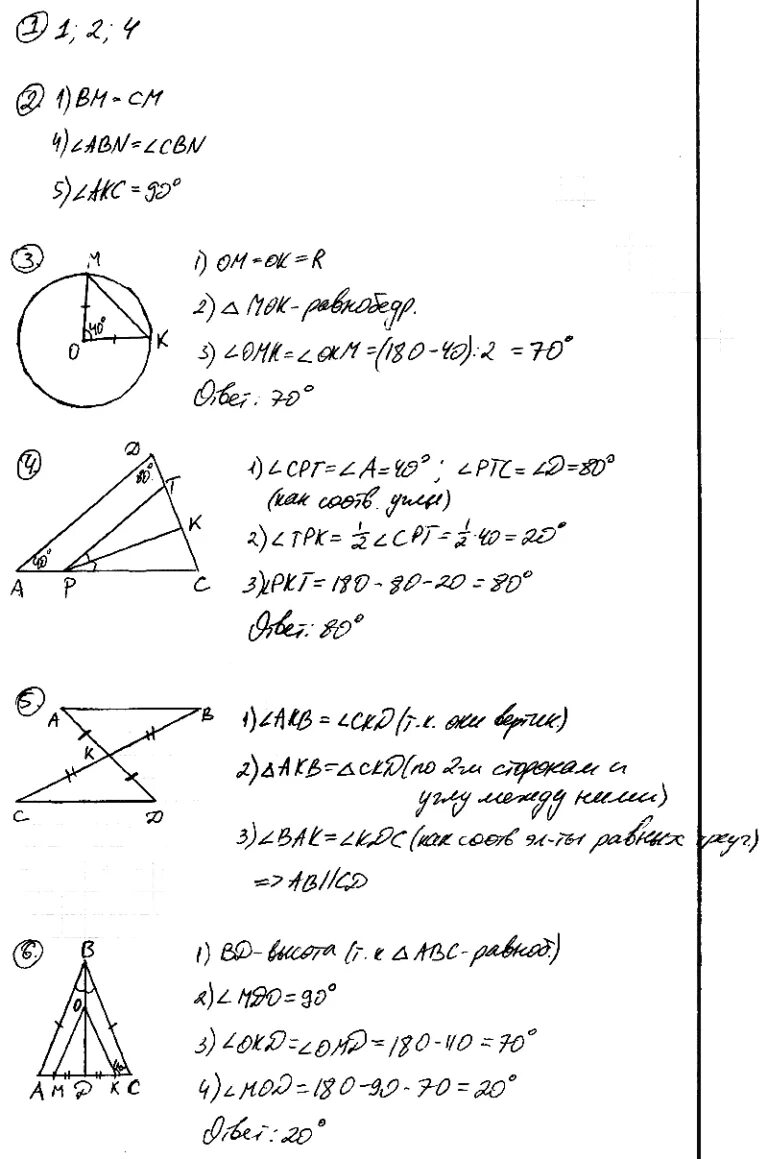 ① 1; 2; 4
② 1) BM = CM
4) ∠ABN = ∠CBN
5) ∠AKC = 90°
③
M
40°
O
K
1) OM = OK = R
2) △ MOK - равнобедр.
3) ∠OMK = ∠OKM = (180 - 40) : 2 = 70°
Ответ: 70°
④
D
80°
T
K
40°
A P C
1) ∠CPT = ∠A = 40°; ∠PTC = ∠D = 80°
(как соотв. углы)
2) ∠TPK = 1/2 ∠CPT = 1/2 · 40 = 20°
3) ∠PKT = 180 - 80 - 20 = 80°
Ответ: 80°
⑤
A B
K
C D
1) ∠AKB = ∠CKD (т.к. они вертик.)
2) △AKB = △CKD (по 2-м сторонам и
углу между ними)
3) ∠BAK = ∠KDC (как соотв эл-ты равных треуг)
=> AB || CD
⑥
B
O
A M D K C
1) BD - высота (т.к △ABC - равноб.)
2) ∠MDO = 90°
3) ∠OKD = ∠OMD = 180 - 110 = 70°
4) ∠MOD = 180 - 90 - 70 = 20°
Ответ: 20°